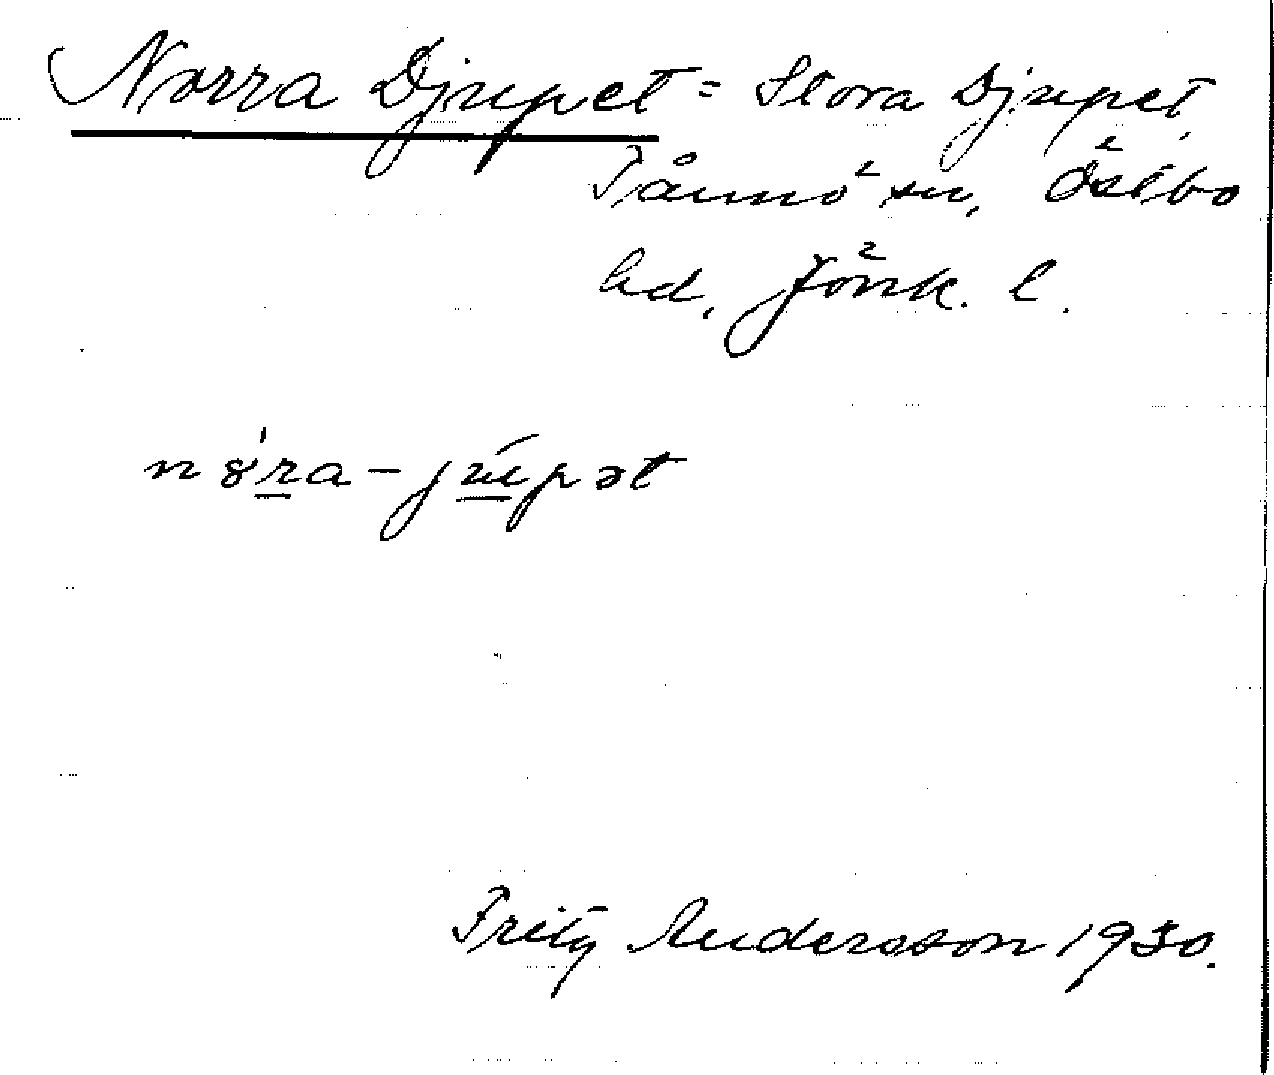 Norra Djupet = Stora Djupet,
Tånnö sn, Östbo
hd, Jönk. l.
n8́r̲a-jú̲pət
Fritz Andersson 1930.